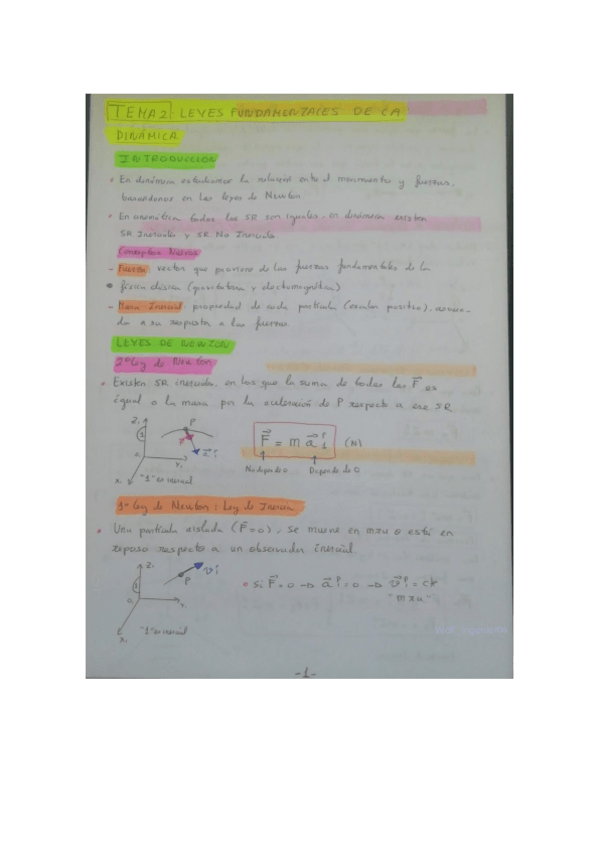 TEMA 2. LEYES FUNDAMENTALES DE LA
DINÁMICA
INTRODUCCION
• En dinámica estudiamos la relación entre el movimiento y fuerzas,
basandonos en las leyes de Newton.
• En cinemática todos los SR son iguales, en dinámica existen
SR Inerciales y SR No Inerciales
Conceptos Nuevos
- Fuerza: vector que proviene de las fuerzas fundamentales de la
física clásica (gravitatoria y electromagnética)
- Masa Inercial: propiedad de cada partícula (escalar positivo), asocia-
da a su respuesta a las fuerzas.
LEYES DE NEWTON
2ª Ley de Newton
• Existen SR inerciales, en los que la suma de todas las F⃗ es
igual a la masa por la aceleración de P respecto a ese SR
Z₁ P
1 F⃗
O₁ Y₁
X₁ "1" es inercial
F⃗ = m a⃗ᴾ₁ (N)
No depende Depende de
1ª Ley de Newton: Ley de Inercia
• Una partícula aislada (F⃗=0), se mueve en mru o está en
reposo respecto a un observador inercial
Z₁ v⃗₁
1 P
O₁ Y₁
X₁ "1" es inercial
• Si F⃗ = 0 → a⃗ᴾ₁ = 0 → v⃗ᴾ₁ = ck
"mru"
-1-